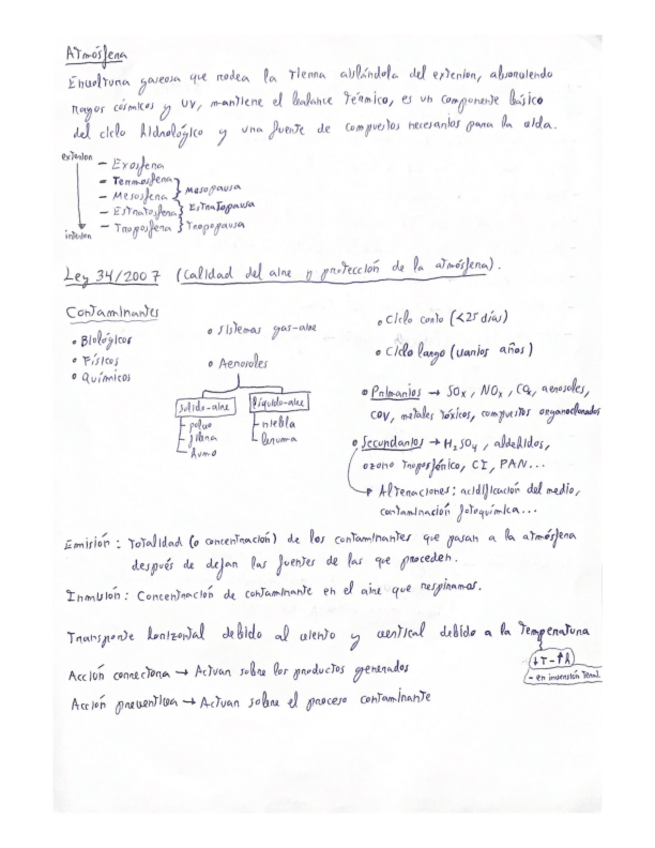 Atmósfera
Envoltura gaseosa que rodea la tierra aislándola del exterior, absorviendo
rayos cósmicos y UV, mantiene el balance térmico, es un componente básico
del ciclo hidrológico y una fuente de compuestos necesarios para la vida.
exterior
- Exosfera
- Termosfera
- Mesosfera
- Estratosfera
- Troposfera
Mesopausa
Estratopausa
Tropopausa
interior
Ley 34/2007 (Calidad del aire y protección de la atmósfera).
Contaminantes
• Biológicos
• Físicos
• Químicos
• Sistemas gas-aire
• Aerosoles
Sólido-aire
- polvo
- humo
Líquido-aire
- niebla
- bruma
• Ciclo corto (<25 días)
• Ciclo largo (varios años)
• Primarios → SOx, NOx, COx, aerosoles,
COV, metales tóxicos, compuestos organoclorados
• Secundarios → H₂SO₄, aldehidos,
ozono troposférico, Cl, PAN...
→ Alteraciones: acidificación del medio,
contaminación fotoquímica...
Emisión: Totalidad (o concentración) de los contaminantes que pasan a la atmósfera
después de dejar las fuentes de las que proceden.
Inmisión: Concentración de contaminante en el aire que respiramos.
Transporte horizontal debido al viento y vertical debido a la temperatura
↓T-↑h
- en inversión térm.
Acción correctora → Actuar sobre los productos generados
Acción preventiva → Actuar sobre el proceso contaminante